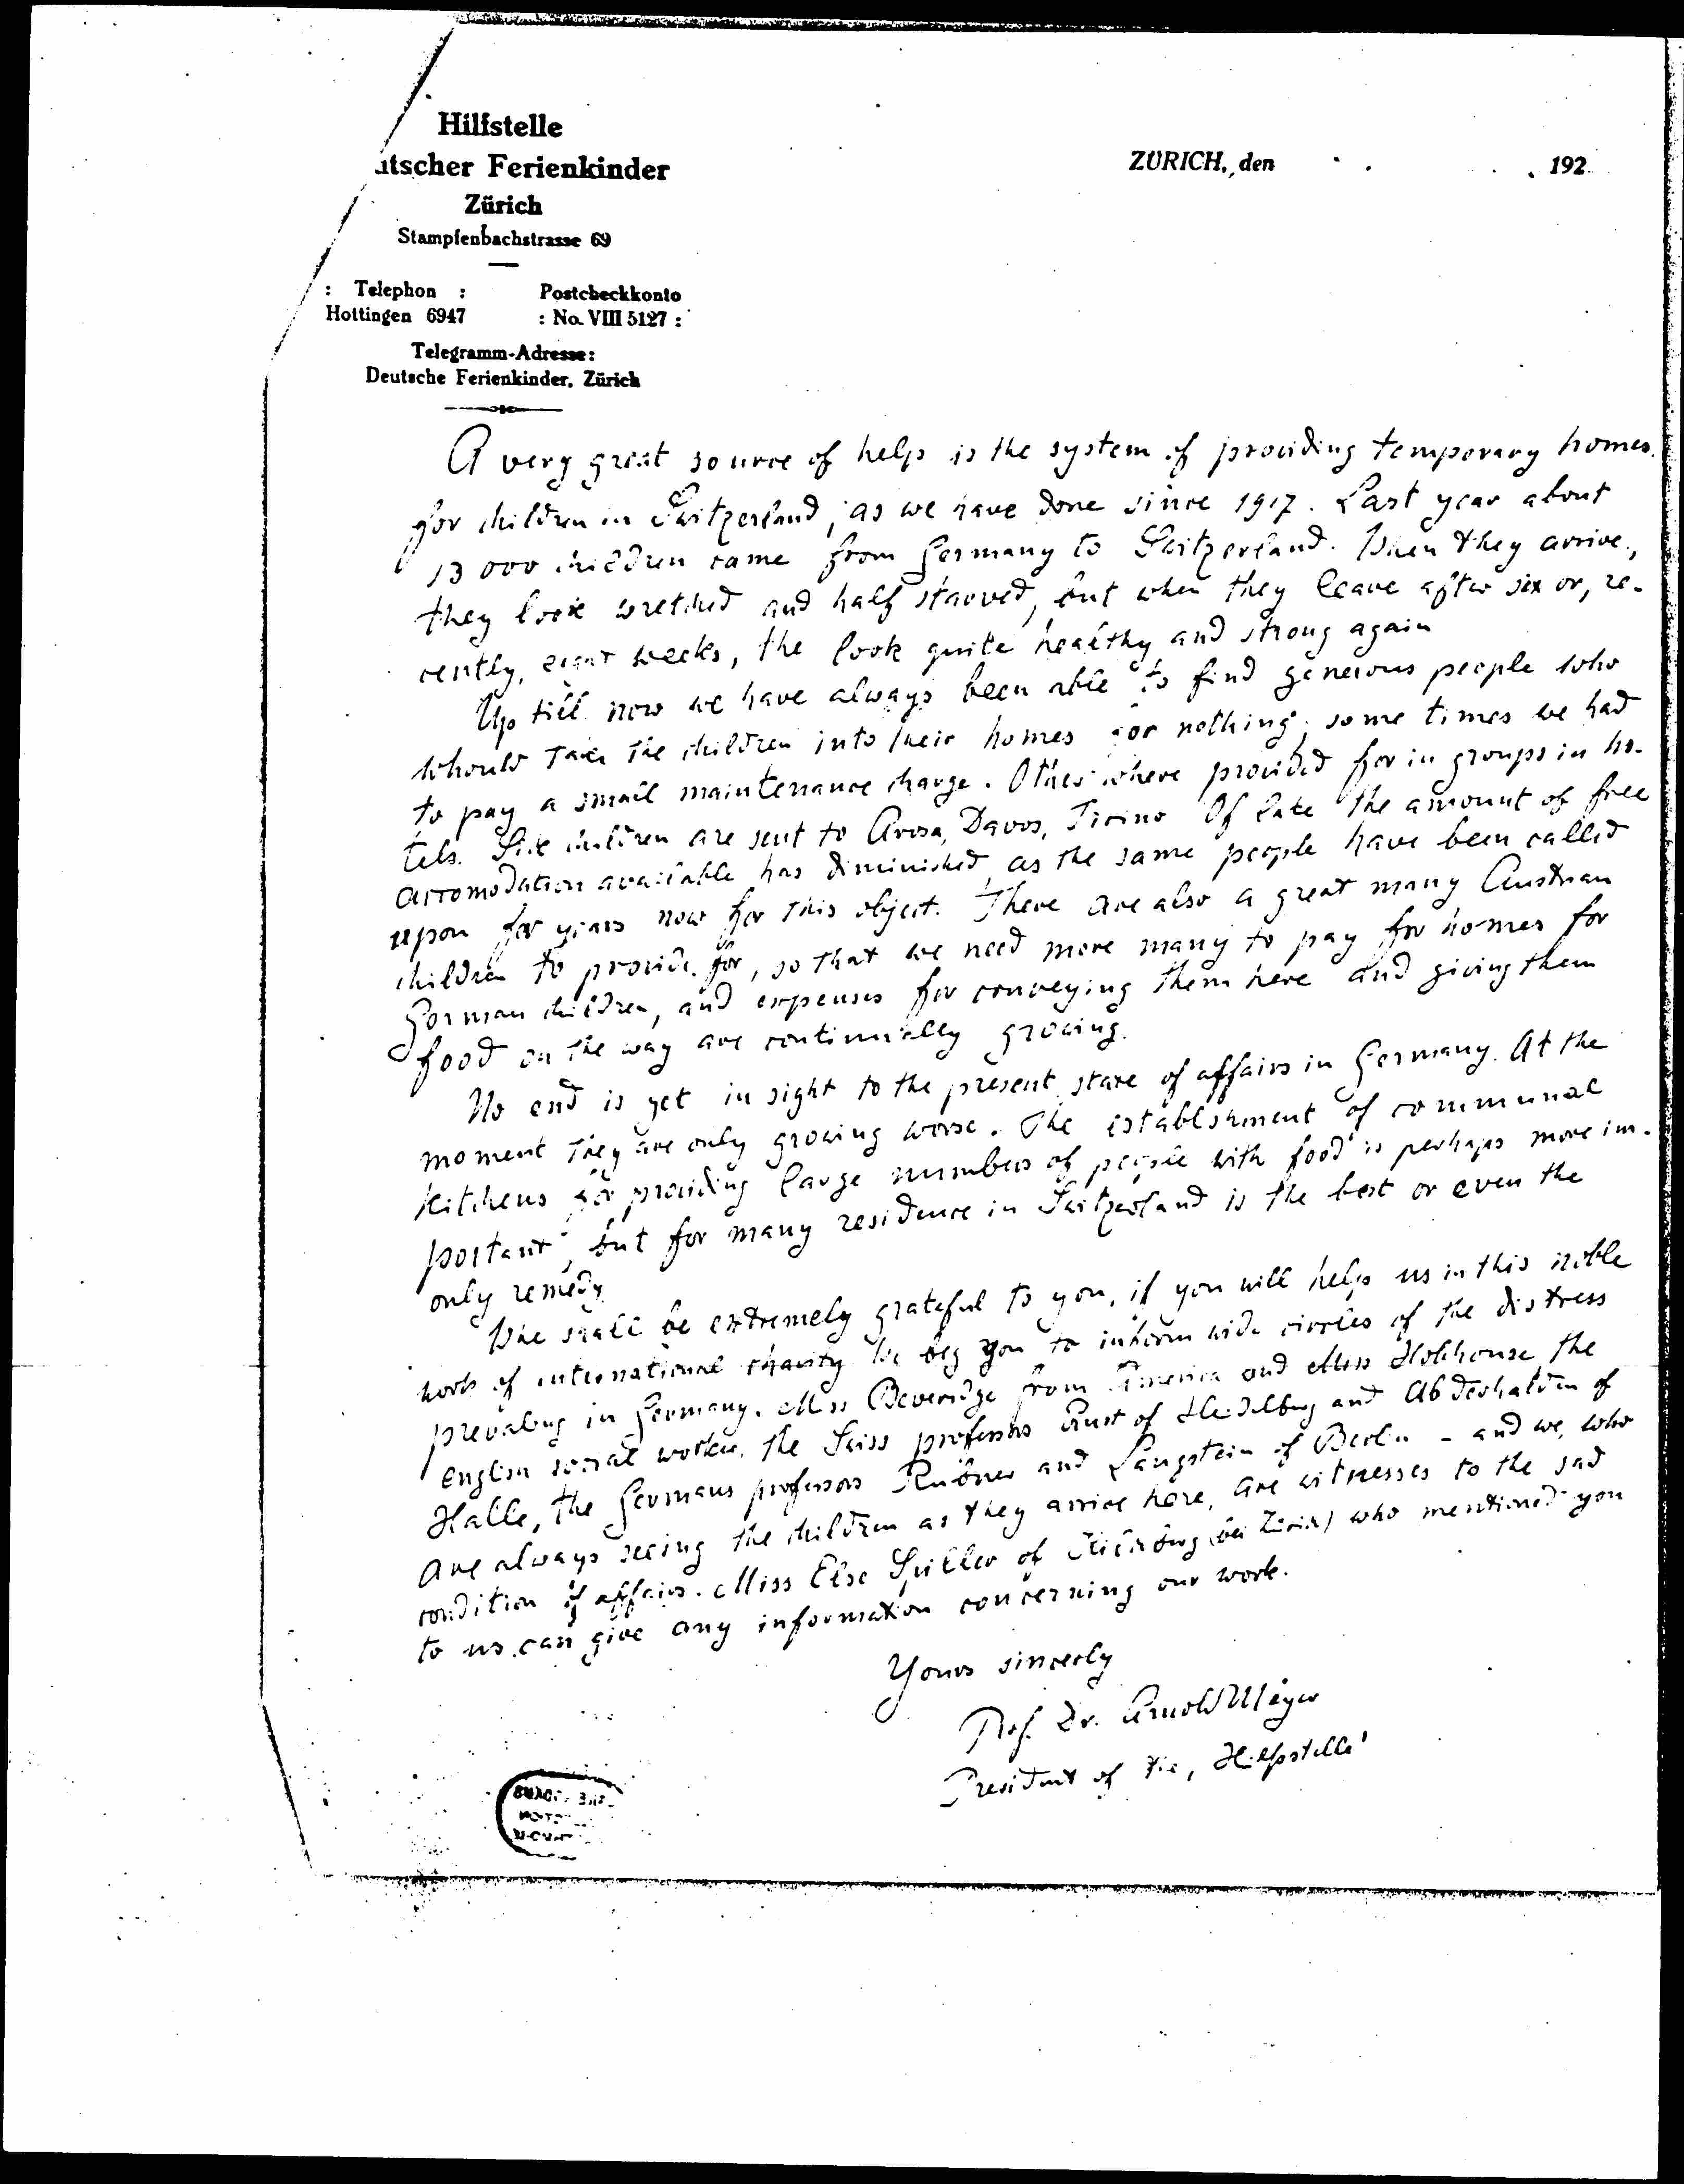 Hilfstelle
utscher Ferienkinder
Zürich
Stampfenbachstrasse 69
: Telephon :
Hottingen 6947
Postcheckkonto
: No. VIII 5127 :
Telegramm-Adresse:
Deutsche Ferienkinder, Zürich
ZÜRICH, den 192
A very great source of help is the system of providing temporary homes
for children in Switzerland, as we have done since 1917. Last year about
13 000 children came from Germany to Switzerland. When they arrive,
they look wretched and half starved, but when they leave after six or, re-
cently, eight weeks, the look quite healthy and strong again
Up till now we have always been able to find generous people who
whould take the children into their homes for nothing; some times we had
to pay a small maintenance charge. Others where provided for in groups in ho-
tels. Sick children are sent to Arosa, Davos, Ticino Of late the amount of free
accomodation available has diminished, as the same people have been called
upon for years now for this object. There are also a great many Austrian
children to provide for, so that we need more many to pay for homes for
German children, and expenses for conveying them here and giving them
food on the way are continually growing.
No end is yet in sight to the present state of affairs in Germany. At the
moment they are only growing worse. The establshment of communal
kitchens for providing large numbers of people with food is perhaps more im-
portant, but for many residence in Switzerland is the best or even the
only remedy
We shall be extremely grateful to you, if you will help us in this noble
work of international charity We beg you to inform wide circles of the distress
prevalung in Germany. Miss Beveridge from America and Miss Hobhouse the
english social worker, the Swiss professors Ernst of Heidelberg and Abderhalden of
Halle, the Germans professors Rubner and Langstein of Berlin - and we, who
are always seeing the children as they arrive here, are witnesses to the sad
condition of affairs. Miss Else Spiller of Kilchberg (bei Zürich) who mentioned you
to us can give any information concerning our work.
Yours sincerly
Prof. Dr. Arnold Meyer
President of the, Hilfsstelle'